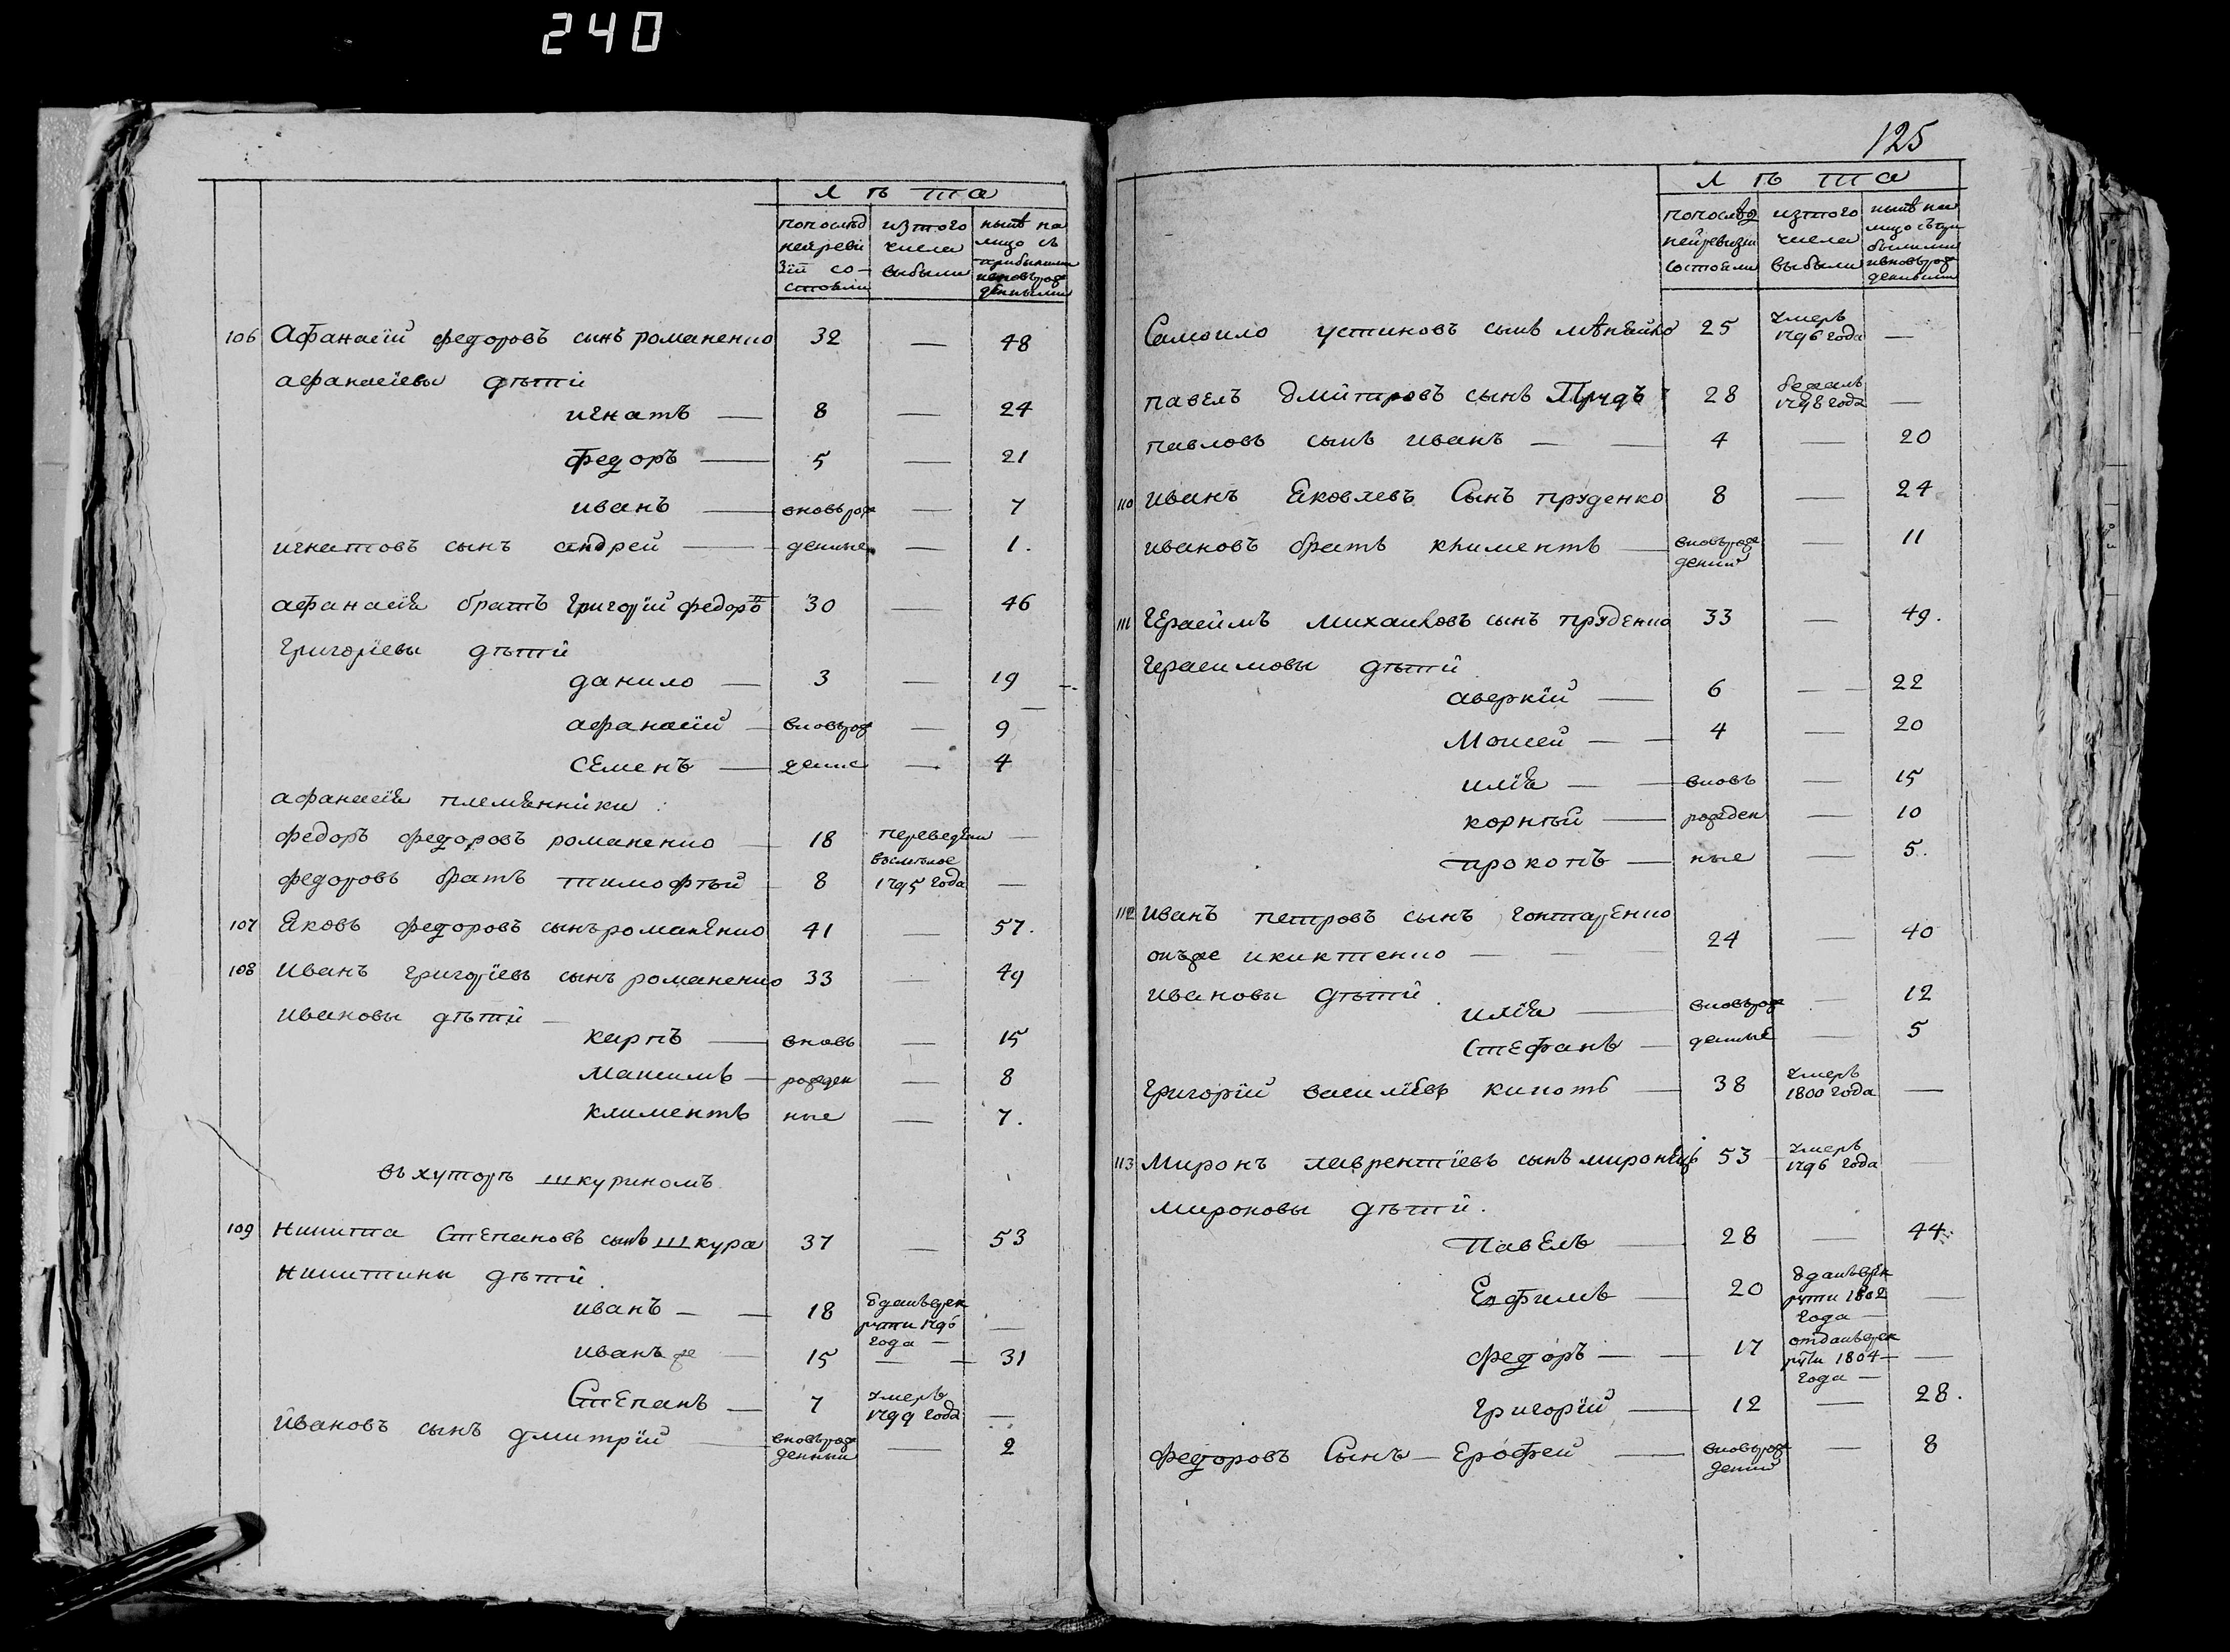 240
лѣта
попослѣд изтого нынѣ на
нейреви числа лицо съ
зіи со- выбыли прибылыми
стояли ивновьрож
денными
106 Афанасій федоровъ сынъ романенко 32 — 48
афанасіевы дѣти
игнатъ — 8 — 24
Федоръ — 5 — 21
иванъ — вновьрож — 7
игнатовъ сынъ андрей — денные — 1.
афанасія братъ григорій федоровъ 30 — 46
григоріевы дѣти
данило — 3 — 19
афанасій — вновьрож — 9
семенъ — денные — 4
афанасія племянники :
федоръ федоровъ романенко — 18 переведены —
федоровъ братъ тимофѣй — 8 1795 года —
107 Яковъ федоровъ сынъ романенко 41 — 57.
108 Иванъ григоріевъ сынъ романенко 33 — 49
ивановы дѣти —
карпъ — вновь — 15
максимъ — рожден — 8
климентъ ные — 7.
въ хуторѣ шкуриномъ
109 Никита Степановъ сынъ шкура 37 — 53
никитины дѣти
иванъ — — 18 вданъврек
рути 1796
года — —
иванъ же — 15 — — 31
Степанъ — 7 умеръ
1799 года —
ивановъ сынъ дмитрій — вновьрож
денный — 2
125
лѣта
попослѣд изтого нынѣ на
нейревизіи числа лицо съпри
состояли выбыли былыми
ивновьрож
денными
Самоило устиновъ сынъ 25 умеръ
1796 года —
павелъ дмитровъ сынъ Прудъ 28 бежалъ
1798 года —
павловъ сынъ иванъ — — 4 — 20
110 иванъ Яковлевъ Сынъ пруденко 8 — 24
ивановъ братъ климентъ — вновьрож
денный — 11
111 Герасимъ михаиловъ сынъ пруденко 33 — 49.
герасимовы дѣти
аверкій — 6 — 22
Моисей — — 4 — 20
илія — — вновь — 15
корнѣй — рожден — 10
прокопъ — ные — 5.
112 иванъ петровъ сынъ гонтаренко
онъже никитенко — — 24 — 40
ивановы дѣти
илія — вновьрож — 12
Стефанъ — денные — 5
григорій василіевъ — 38 умеръ
1800 года —
113 Миронъ лаврентіевъ сынъ 53 умеръ
1796 года
мироновы дѣти.
Павелъ — 28 — 44.
Ефимъ — 20 вданъврек
рути 1802
года — —
федоръ — — 17 отданъврек
рути 1804 —
года — —
григорій — 12 — 28.
федоровъ Сынъ — Ерофей — вновьрож
денный — 8